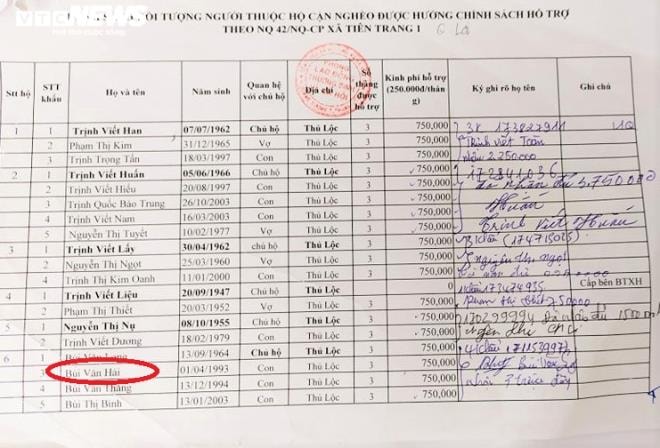 VTC NEWS
TƯỢNG NGƯỜI THUỘC HỘ CẬN NGHÈO ĐƯỢC HƯỞNG CHÍNH SÁCH HỖ TRỢ
THEO NQ 42/NQ-CP XÃ TIÊN TRANG 1
Stt hộ STT khẩu Họ và tên Năm sinh Quan hệ với chủ hộ Địa chỉ Số tháng được hỗ trợ Kinh phí hỗ trợ (250.000đ/tháng) Ký ghi rõ họ tên Ghi chú
1 1 Trịnh Viết Han 07/07/1962 Chủ hộ Thủ Lộc 3 750,000
2 Phạm Thị Kim 31/12/1965 Vợ Thủ Lộc 3 750,000 Trịnh Viết Toàn
3 Trịnh Trọng Tấn 18/03/1997 Con Thủ Lộc 3 750,000 2.250000
2 1 Trịnh Viết Huấn 05/06/1966 Chủ hộ Thủ Lộc 3 750,000 172841036
2 Trịnh Viết Hiếu 20/08/1997 Con Thủ Lộc 3 750,000 3,750000
3 Trịnh Quốc Bảo Trung 26/10/2003 Con Thủ Lộc 3 750,000 Huấn
4 Trịnh Viết Nam 16/03/2003 Con Thủ Lộc 3 750,000 Trịnh Viết Huấn
5 Nguyễn Thị Tuyết 10/02/1977 Vợ Thủ Lộc 3 750,000
3 1 Trịnh Viết Lấy 30/04/1962 chủ hộ Thủ Lộc 3 750,000
2 Nguyễn Thị Ngọt 25/03/1960 Vợ Thủ Lộc 3 750,000 Nguyễn Thị Ngọt
4 Trịnh Thị Kim Oanh 11/01/2000 Con Thủ Lộc 3 750,000
4 1 Trịnh Viết Liệu 20/09/1947 chủ hộ Thủ Lộc 0 173474935 Cấp bên BTXH
2 Phạm Thị Thiết 20/03/1952 Vợ Thủ Lộc 3 750,000 750000
5 1 Nguyễn Thị Nụ 08/10/1955 Chủ hộ Thủ Lộc 3 750,000 170299994
2 Trịnh Viết Dương 18/02/1979 Con Thủ Lộc 3 750,000
6 1 Bùi Văn Long 13/09/1964 Chủ hộ Thủ Lộc 3 750,000
3 Bùi Văn Hải 01/04/1993 Con Thủ Lộc 3 750,000
4 Bùi Văn Thắng 13/12/1994 Con Thủ Lộc 3 750,000
5 Bùi Thị Bình 13/01/2003 Con Thủ Lộc 3 750,000